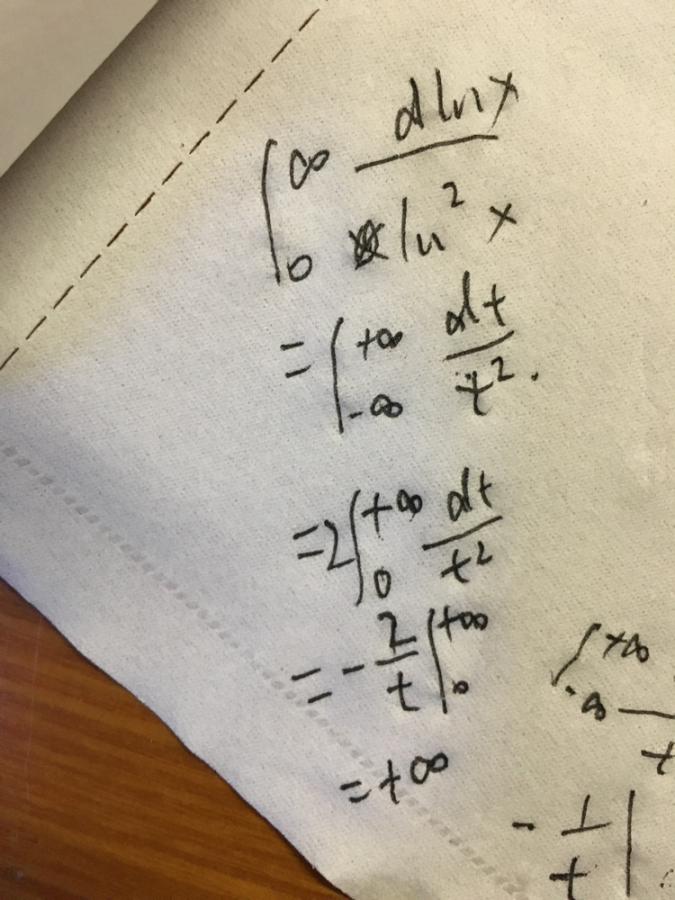 ∫₀^∞ dlnx / ln² x
= ∫₋∞^+∞ dt / t².
= 2∫₀^+∞ dt / t²
= - 2/t |₀^+∞
= +∞
∫₋∞^+∞ / t
- 1/t |